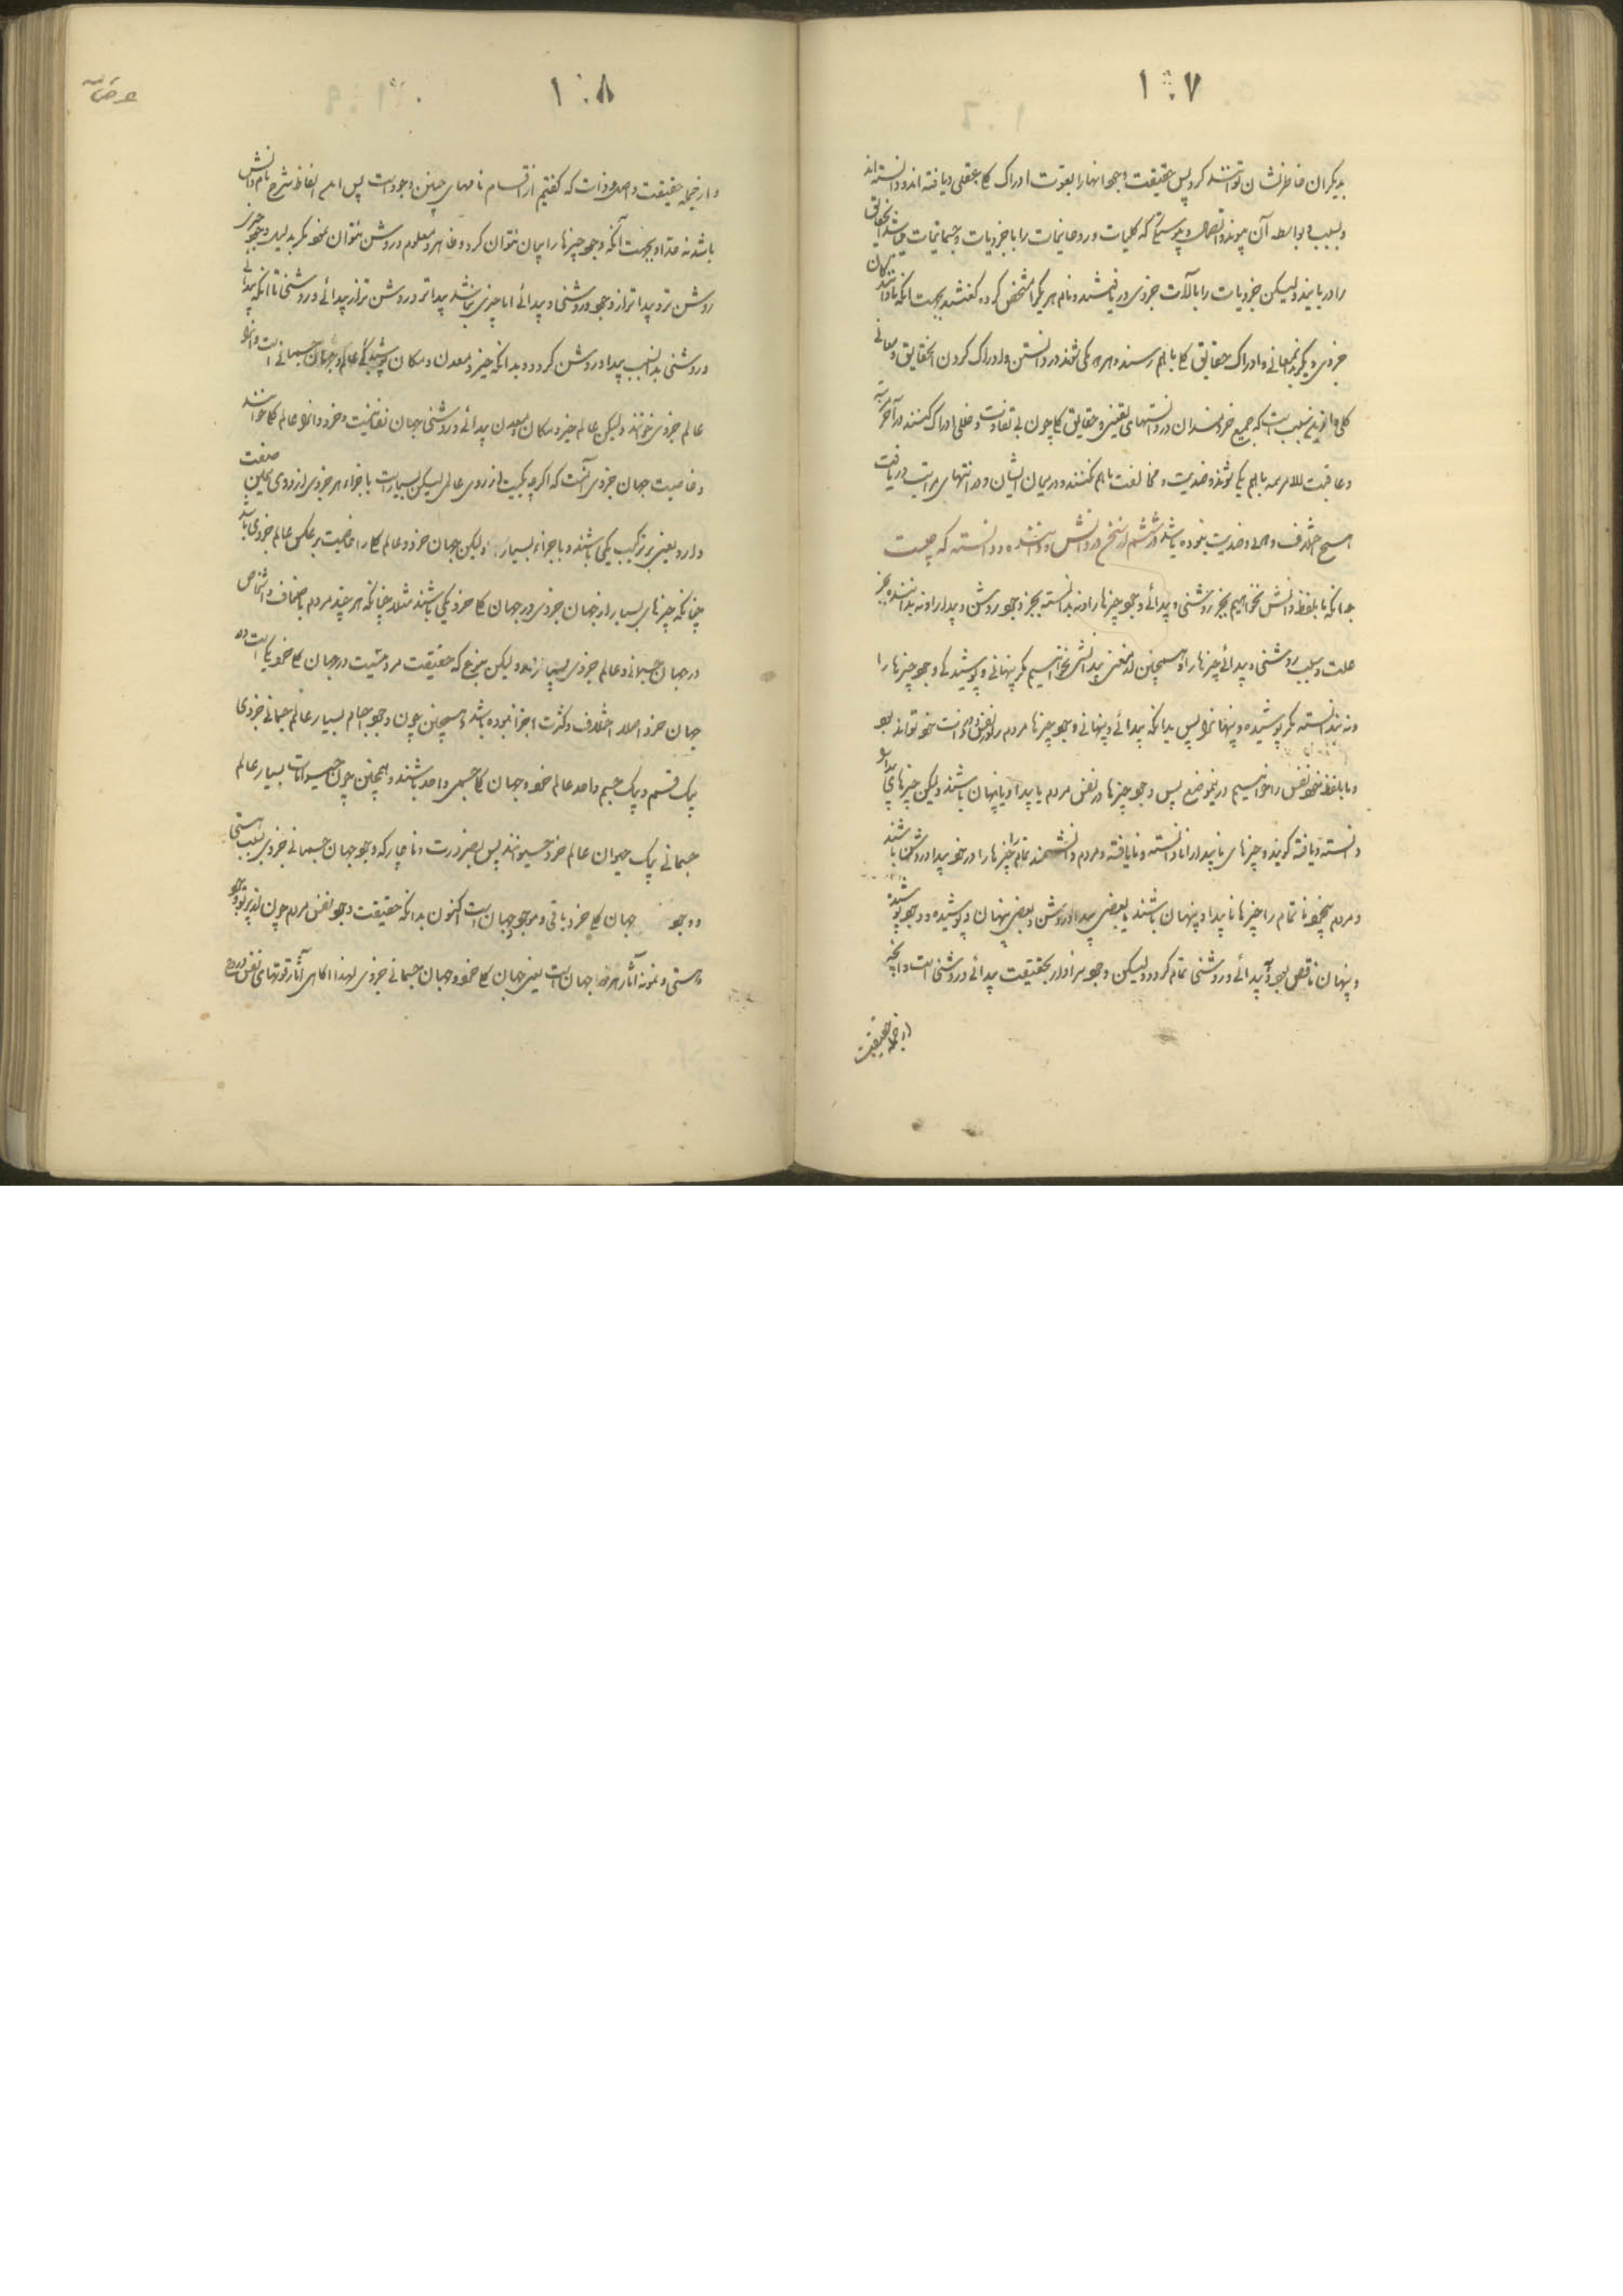 ۱۰۷
بدیکران خاطرنشان توانند کرد پس حقیقت وجود آنها را بقوت ادراک کلی عقلی دریافته اند و دانسته اند
و بسبب و بواسطه آن پیوند و اتصال و پیوستگی که کلیات و روحانیات را با جزویات و جسمانیات
را دریابند ولیکن جزویات را بآلات جزوی دریافتند و نام هر یکرا مشخص کرده گفتند بجهت آنکه
جزوی دیگر بدان معانی و ادراک حقایق کلی باهم رسند و همه یکی شوند در دانستن و ادراک کردن آن حقایق و معانی
کلی و از این سبب است که جمیع خردمندان در دانستهای یقینی و حقایق کلی چون بی تفاوت و خللی ادراک کنند در آخر مرتبه
و عاقبت الامر همه باهم یکی شوند و ضدیت و مخالفت باهم نکنند و درمیان ایشان و در انتهای مراتب دریافت
هیچ اختلاف و ضدیت نبوده باشد در ششم از سخن در دانش و داننده و دانسته که چیست
بدانکه ما بلفظ دانش نخواهیم بجز روشنی و پیدائی وجود چیزها را و نه بدانسته بجز وجود روشن و پیدا را و نه بداننده بجز
علت و سبب روشنی و پیدائی چیزها را و همچنین از معنی بیدانشی نخواهیم مگر پنهانی و پوشیدگی وجود چیزها را
و نه بندانسته مگر پوشیده و پنهان را پس بدانکه پیدائی و پنهانی وجود چیزها مردم را در نفس و ذات خود تواند بود
و ما بلفظ خود نفس را خواهیم در این موضع پس وجود چیزها در نفس مردم یا پیدا و یا پنهان باشند ولیکن چیزهای پیدا را
دانسته و یافته گویند و چیزهای ناپیدا را نادانسته و نایافته و مردم دانشمند تمام را چیزها در خود پیدا و روشن باشند
و مردم بیخود ناتمام را چیزها ناپیدا و پنهان باشند یا بعضی پیدا و روشن و بعضی پنهان و پوشیده و وجود پوشیده
و پنهان ناقص بود و پیدائی و روشنی تمام گردد ولیکن وجود سزاوار بحقیقت پیدائی و روشنی است و آنچه
از جمله حقیقت
۱۰۸
و از جمله حقیقت واحده و ذات که گفتیم از اقسام نامهای چنین وجود است پس این الفاظ شرح نام دانش
باشد نه حد او بجهت آنکه وجود چیزها را بیان نتوان کرد و ظاهر و معلوم و روشن نتوان نمود مگر بدلیل وجود چیزی
روشن تر و پیداتر از وجود و روشنی و پیدائی اما چیزی نباشد پیداتر و روشن تر از پیدائی و روشنی تا آنکه پیدائی
و روشنی بدان سبب پیدا و روشن گردد و بدانکه حیز و معدن و مکان پوشیدگی عالم و جهان جسمانی است و آنرا
عالم جزوی خوانند ولیکن عالم حیز و مکان و معدن پیدائی و روشنی جهان نفسانیت و خرد و آنرا عالم کلی خوانند
و خاصیت جهان جزوی آنست که اگرچه یکیست از روی عالمی لیکن بسیار است با جزاء هر جزوی از روی همین صفت
دارد یعنی بر ترکیب یکی باشند و با جزاء بسیار ولیکن جهان خرد و عالم کلی را خاصیت برعکس عالم جزوی باشد
چنانکه چیزهای بسیار از جهان جزوی در جهان کلی خرد یکی باشند مثلا چنانکه هرچند مردم باصناف و اشخاص
در جهان جسمانی و عالم جزوی بسیارند ولیکن بنوع که حقیقت مردمیست در جهان کلی خرد یکی است و در
جهان خرد اصلا اختلاف و کثرت اجزا نبوده باشد و همچنین چون وجود اجسام بسیار عالم جسمانی جزوی
بیک قسم و بیک جسم واحد عالم خرد و جهان کلی جسمی واحد باشند و همچنین چون حیوانات بسیار عالم
جسمانی بیک حیوان عالم خرد حیوانند پس بضرورت و ناچار که وجود جهان جسمانی جزوی بسبب هستی
و وجود جهان کلی خرد باقی و موجود جهان است اکنون بدانکه حقیقت وجود نفس مردم چون
هستی و نمونه آثار هر دو جهان است یعنی جهان کلی خرد و جهان جسمانی جزوی لهذا گاهی آثار قوتهای نفس